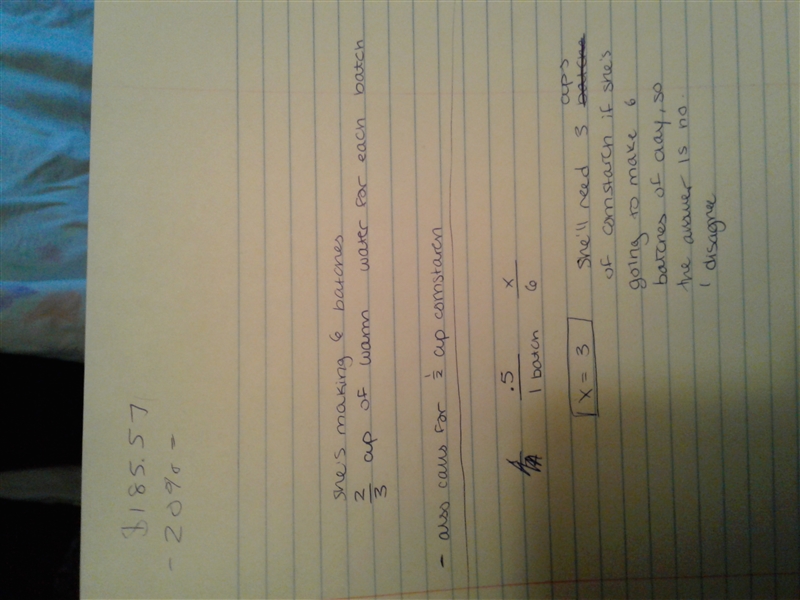 $185.57
- 20% =
she's making 6 batches
2/3 cup of warm water for each batch
- also calls for 1/2 cup cornstarch
.5 x
1 batch 6
x = 3
she'll need 3 cups
of cornstarch if she's
going to make 6
batches of clay, so
the answer is no.
I disagree